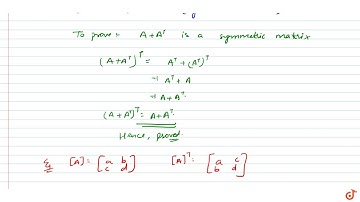 To prove :- A+Aᵀ is a symmetric matrix
(A+Aᵀ)ᵀ = Aᵀ + (Aᵀ)ᵀ
= Aᵀ + A
= A + Aᵀ
(A+Aᵀ)ᵀ = A+Aᵀ
Hence, proved.
Eg [A] = [a b; c d] [A]ᵀ = [a c; b d]